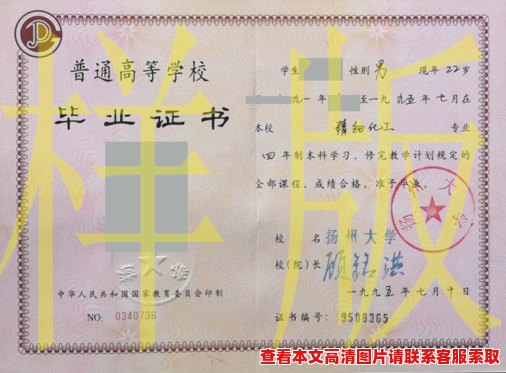 普通高等学校
毕业证书
中华人民共和国国家教育委员会印制
NO: 0340736
学生 性别 男 现年 22 岁
一九九一年 至一九九五年七月在
本校 精细化工 专业
四年制本科学习，修完教学计划规定的
全部课程，成绩合格，准予毕业。
校 名 扬州大学
校(院)长 顾铭洪
一九九五年七月十日
证书编号: 9508365
样版
查看本文高清图片请联系客服索取